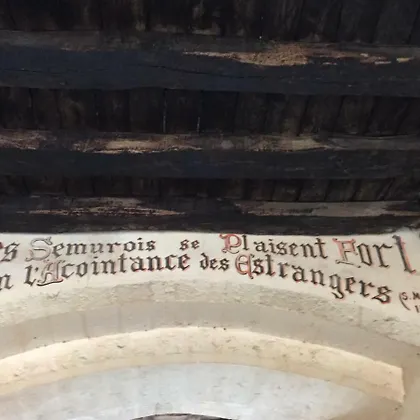 s Semurois se Plaisent Fort
n l'Acointance des Estrangers (S.M